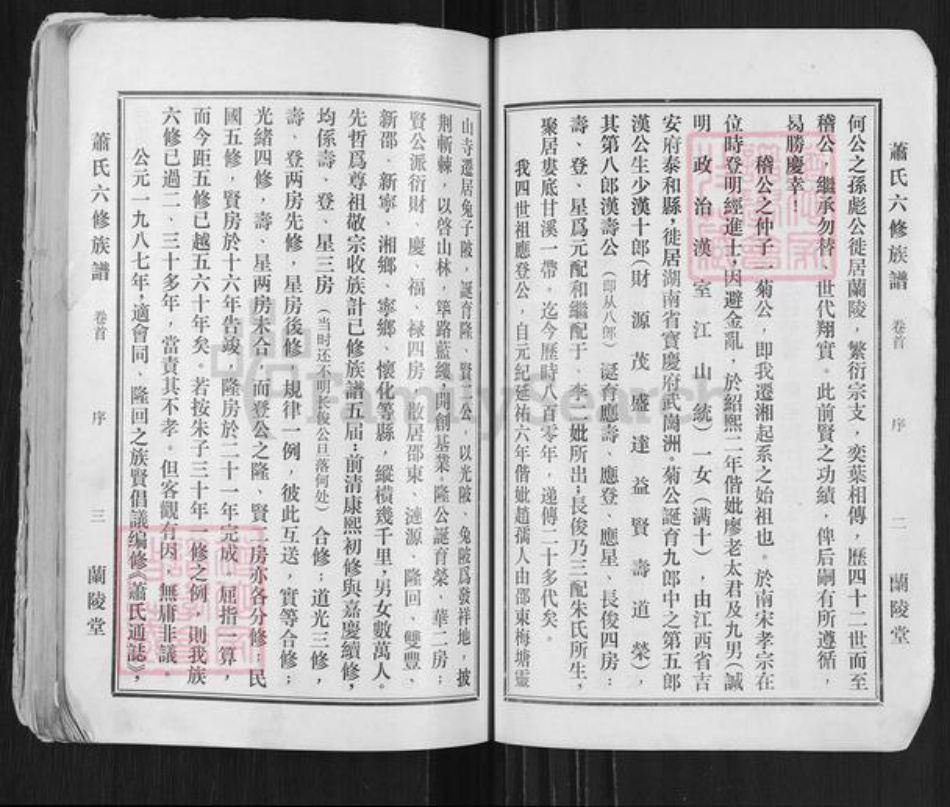 蕭氏六修族譜 卷首 序 二 蘭陵堂
何公之孫彪公徙居蘭陵，繁衍宗支，奕葉相傳，歷四十二世而至
稽公，繼承勿替、世代翔實。此前賢之功績，俾后嗣有所遵循，
曷勝慶幸！
稽公之仲子一菊公，即我遷湘起系之始祖也。於南宋孝宗在
位時登明經進士，因避金亂，於紹熙二年偕妣廖老太君及九男（誠
明 政 治 漢 室 江 山 統）一女（满十），由江西省吉
安府泰和縣，徙居湖南省寶慶府武崗洲。菊公誕育九郎中之第五郎
漢公生少漢十郎（財 源 茂 盛 達 益 賢 壽 道 榮），
其第八郎漢壽公（即从八郎）誕育應壽、應登、應星、長俊四房：
壽、登、星爲元配和繼配于、李二妣所出；長俊乃三配朱氏所生，
聚居婁底甘溪一帶。迄今歷時八百零年，递傳二十多代矣。
我四世祖應登公，自元紀延祐六年偕妣趙孺人由邵東梅塘靈
山寺遷居兔子陂，誕育隆、賢二公，以光陂、兔陂爲發祥地，披
荆斬棘，以啓山林，篳路藍縷，開創基業。隆公誕育榮、華二房；
賢公派衍財、慶、福、禄四房，散居邵東、漣源、隆回、雙豐、
新邵、新寧、湘鄉、寧鄉、懷化等縣，縱横幾千里，男女數萬人。
先哲爲尊祖敬宗收族計已修族譜五届：前清康熙初修與嘉慶續修，
均係壽、登、星三房（当时还不明长俊公旦落何处）合修；道光三修，
壽、登两房先修，星房後修，規律一例，彼此互送，實等合修；
光緒四修，壽、星两房未合，而登公之隆、賢二房亦各分修；民
國五修，賢房於十六年告竣，隆房於二十一年完成，屈指一算，
而今距五修已越五六十年矣。若按朱子三十年一修之例，則我族
六修已過二、三十多年，當責其不孝。但客觀有因，無庸非議。
公元一九八七年，適會同、隆回之族賢倡議编修《蕭氏通誌》，
蕭氏六修族譜 卷首 序 三 蘭陵堂
FamilySearch